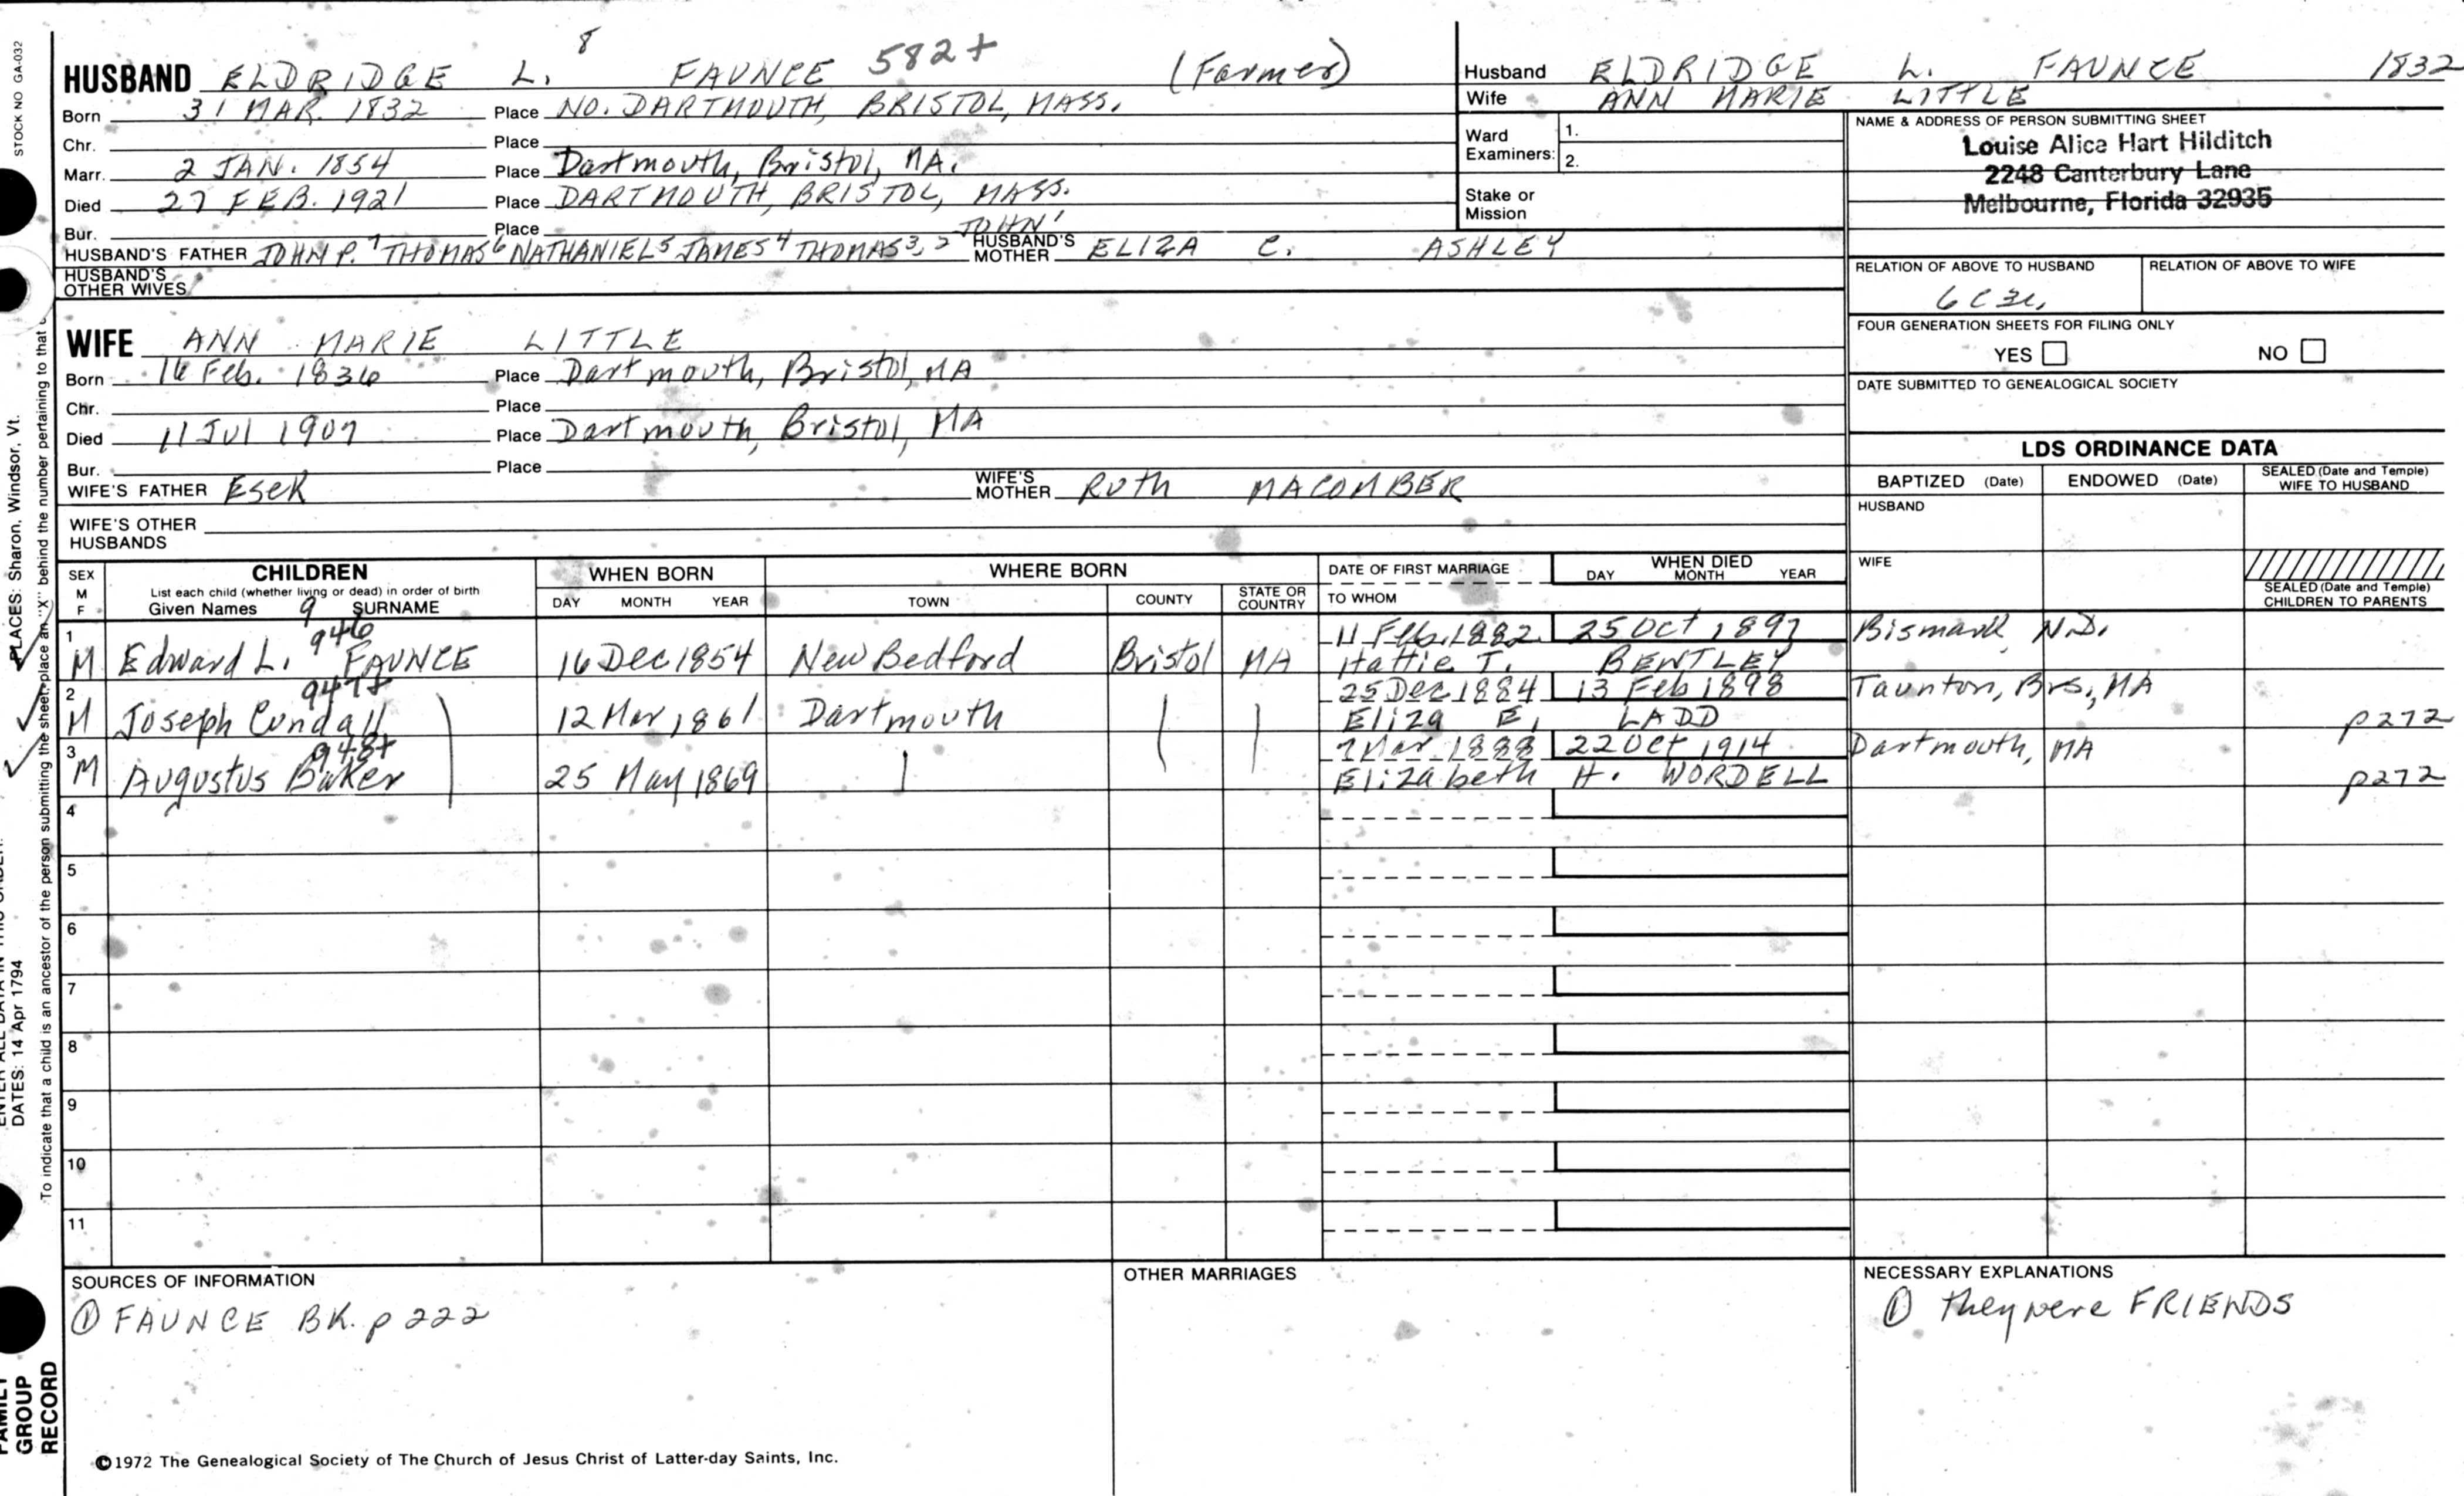 STOCK NO GA-032
8
HUSBAND ELDRIDGE L. FAUNCE 582+ (Farmer)
Born 31 MAR. 1832 Place NO. DARTMOUTH, BRISTOL, MASS.
Chr. Place
Marr. 2 JAN. 1854 Place Dartmouth, Bristol, MA.
Died 27 FEB. 1921 Place DARTMOUTH, BRISTOL, MASS.
Bur. Place
JOHN1
HUSBAND'S FATHER JOHN P.7 THOMAS6 NATHANIEL5 JAMES4 THOMAS3,2 HUSBAND'S MOTHER ELIZA C. ASHLEY
HUSBAND'S OTHER WIVES
Husband ELDRIDGE L. FAUNCE 1832
Wife ANN MARIE LITTLE
Ward Examiners: 1.
2.
Stake or Mission
NAME & ADDRESS OF PERSON SUBMITTING SHEET
Louise Alica Hart Hilditch
2248 Canterbury Lane
Melbourne, Florida 32935
RELATION OF ABOVE TO HUSBAND RELATION OF ABOVE TO WIFE
FOUR GENERATION SHEETS FOR FILING ONLY
YES NO
DATE SUBMITTED TO GENEALOGICAL SOCIETY
WIFE ANN MARIE LITTLE
Born 16 Feb. 1836 Place Dartmouth, Bristol, MA
Chr. Place
Died 11 Jul 1907 Place Dartmouth, Bristol, MA
Bur. Place
WIFE'S FATHER Esek WIFE'S MOTHER Ruth MACOMBER
WIFE'S OTHER HUSBANDS
LDS ORDINANCE DATA
BAPTIZED (Date) ENDOWED (Date) SEALED (Date and Temple) WIFE TO HUSBAND
HUSBAND
WIFE
SEALED (Date and Temple) CHILDREN TO PARENTS
SEX M F
CHILDREN
List each child (whether living or dead) in order of birth
Given Names 9 SURNAME
WHEN BORN
DAY MONTH YEAR
WHERE BORN
TOWN COUNTY STATE OR COUNTRY
DATE OF FIRST MARRIAGE
TO WHOM
WHEN DIED
DAY MONTH YEAR
1 946 11 Feb. 1882 25 Oct 1897 Bismark, N.D.
M Edward L. FAUNCE 16 Dec 1854 New Bedford Bristol MA Hattie T. BENTLEY
2 947+ 25 Dec 1884 13 Feb 1898 Taunton, Brs., MA
M Joseph Cundall 12 Mar 1861 Dartmouth Eliza E. LADD p272
3 948+ 7 Mar 1888 22 Oct 1914 Dartmouth, MA
M Augustus Baker 25 May 1869 Elizabeth H. WORDELL p272
4
5
6
7
8
9
10
11
SOURCES OF INFORMATION
① FAUNCE BK. p 222
OTHER MARRIAGES
NECESSARY EXPLANATIONS
① they were FRIENDS
©1972 The Genealogical Society of The Church of Jesus Christ of Latter-day Saints, Inc.
PLACES: Sharon, Windsor, Vt.
DATES: 14 Apr 1794
To indicate that a child is an ancestor of the person submitting the sheet, place an "X" behind the number pertaining to that
GROUP
RECORD